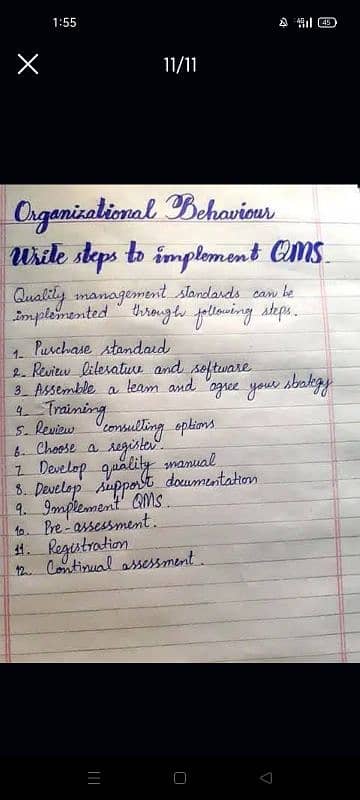 1:55
4G
45
11/11
Organizational Behaviour
Write steps to implement QMS.
Quality management standards can be
implemented through following steps.
1. Purchase standard
2. Review literature and software
3. Assemble a team and agree your strategy
4. Training
5. Review consulting options
6. Choose a register.
7. Develop quality manual
8. Develop support documentation
9. Implement QMS.
10. Pre-assessment.
11. Registration
12. Continual assessment.